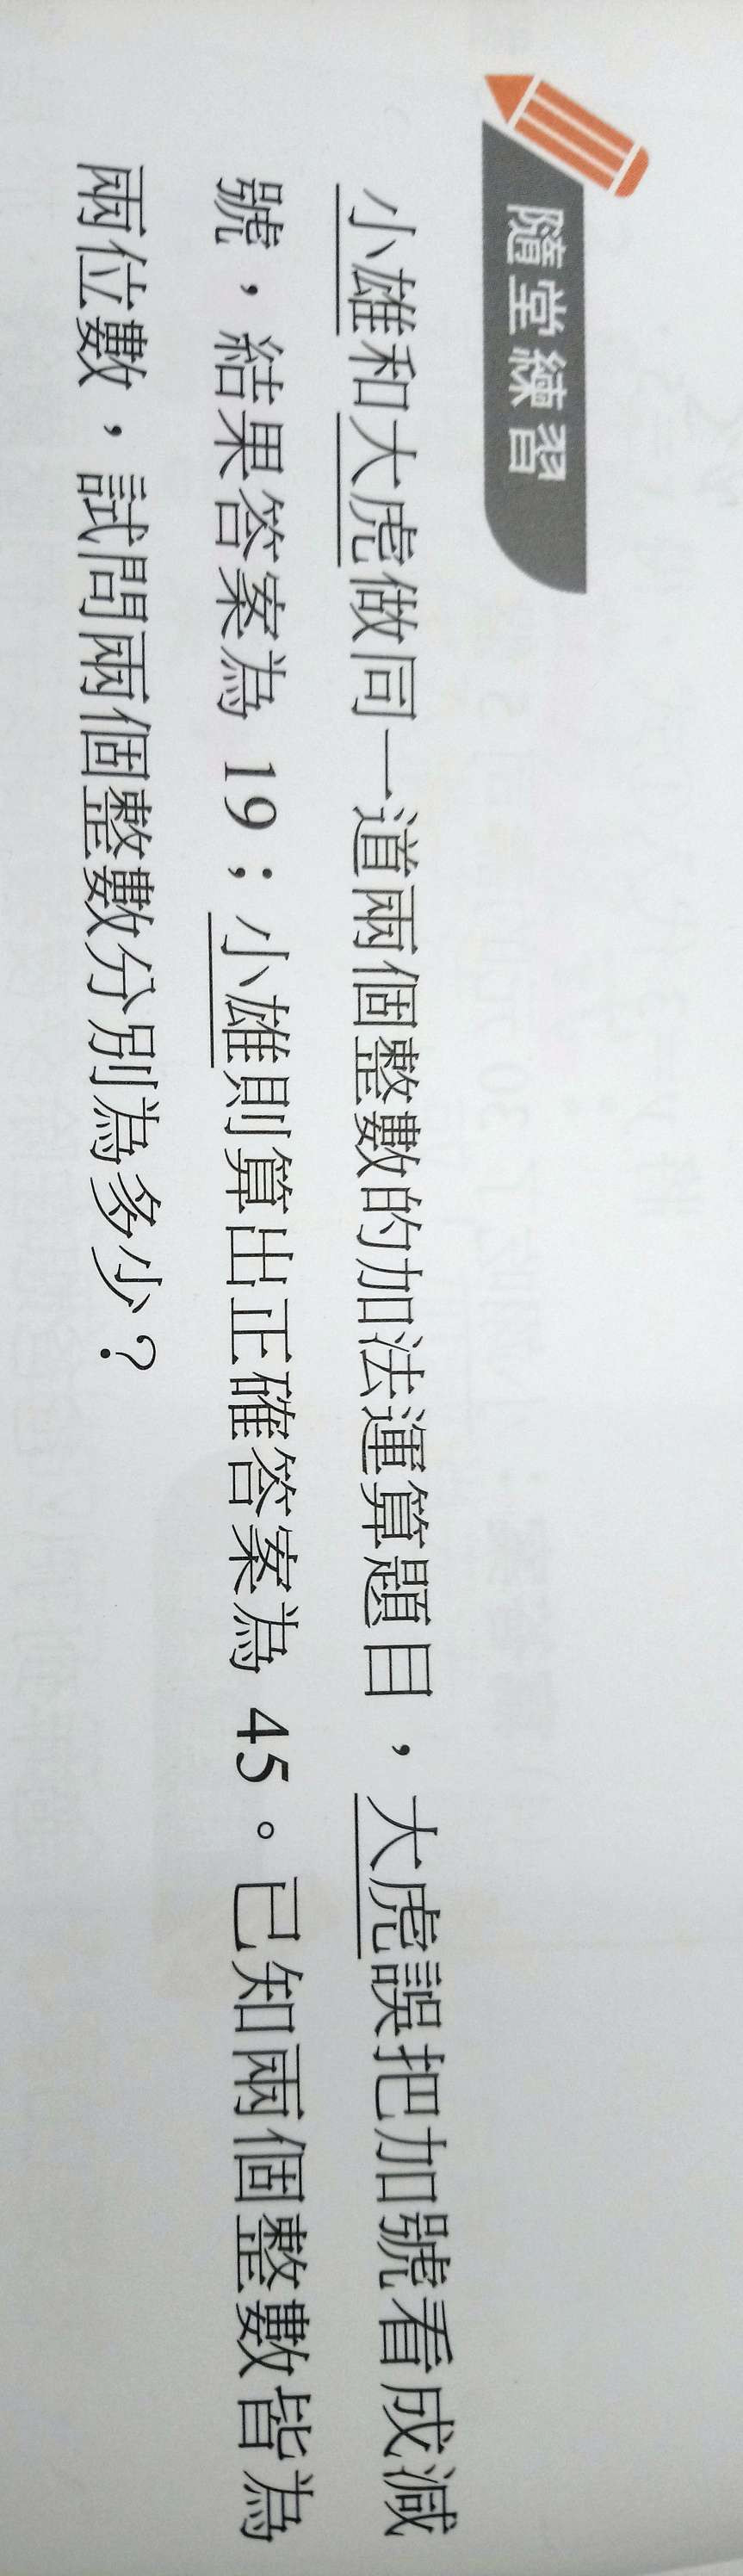 隨堂練習
小雄和大虎做同一道兩個整數的加法運算題目，大虎誤把加號看成減
號，結果答案為 19；小雄則算出正確答案為 45。已知兩個整數皆為
兩位數，試問兩個整數分別為多少？